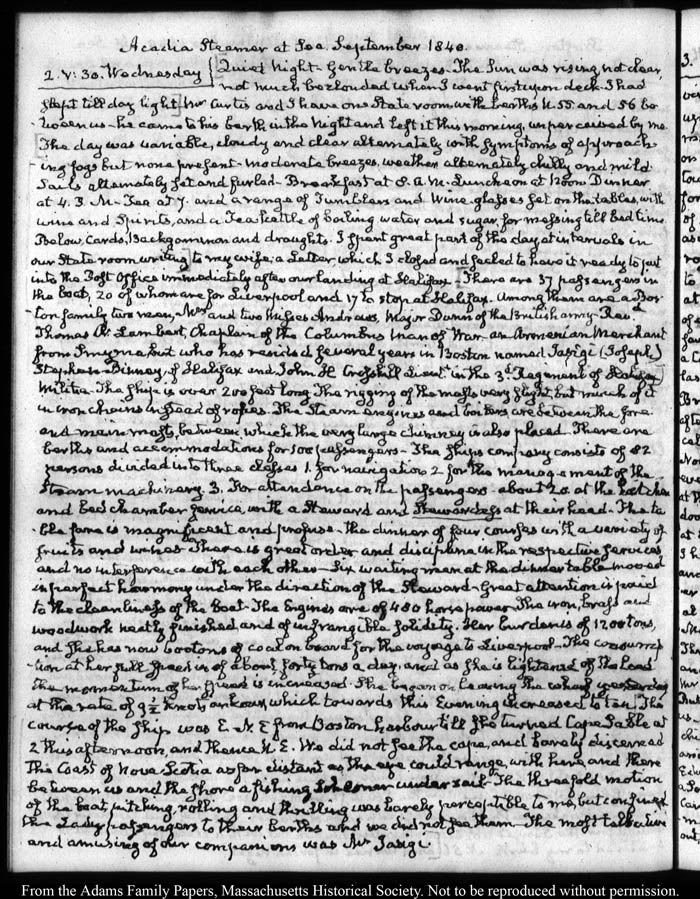 Acadia Steamer at Sea. September 1840.
2. V: 30. Wednesday { Quiet Night. Gentle breezes. The Sun was rising, not clear,
not much beclouded when I went first upon deck. I had
slept till day light] Mr Curtis and I have one State room with berths N. 55 and 56 be
tween us. he came to his berth in the Night and left it this morning, unperceived by me.
The day was variable, cloudy and clear alternately with symptoms of approach
ing fogs but none present. moderate breezes, weather alternately chilly and mild.
Sails alternately set and furled. Breakfast at 8. A.M. Luncheon at noon Dinner
at 4. P.M. Tea at 7. and a range of Tumblers and Wine glasses set on the tables, with
wine and Spirits, and a Tea kettle of boiling water and sugar for messing till Bedtime
Below, Cards, Backgammon and draughts. I spent great part of the day at intervals in
our State room writing] to my wife; a Letter, which I closed and sealed to have it ready to put
into the Post Office immediately after our landing at Halifax. There are 37 passengers in
the boat, 20 of whom are for Liverpool and 17 to stop at Halifax. Among them are a Bos-
ton family two men, Mrs and two Misses Andrews, Major Dunn of the British army. Revd
Thomas R. Lambert, Chaplain of the Columbus man of War. an Armenian Merchant
from Smyrna but who has resided several years in Boston named Iasigi (Joseph)
Stephen Binney, of Halifax and John H. Crosskill Lieut. in the 3d Regiment of Halifax
Militia. The Ship is over 200 feet long. The rigging of the masts very slight, but much of it
in iron chains instead of ropes. The Steam engines and boilers are between the fore
and main masts, between which the very large chimney is also placed. There are
berths and accommodations for 100 passengers. The ships company consists of 82
persons divided into three classes 1. for navigation 2 for the management of the
Steam machinery. 3. For attendance on the passengers. about 20. at the kitchen
and bed chamber service, with a Steward and Stewardess at their head. The ta
ble fare is magnificent and profuse. the dinner of four courses with a variety of
fruits and wines. There is great order and discipline in the respective services
and no interference with each other. Six waiting men at the dinner table moved
in perfect harmony under the direction of the Steward. Great attention is paid
to the cleanliness of the Boat. The Engines are of 450 horse power. The iron, brass and
woodwork neatly finished and of infrangible solidity. Her burden is of 1200 tons,
and she has now 600 tons of coal on board for the voyage to Liverpool. The consump
tion at her full speed is of about forty tons a day, and as she is lightened of the load
the momentum of her speed is increased. She began on leaving the wharf yesterday
at the rate of 9½ knots an hour, which towards this Evening increased to ten. The
course of the Ship was E. N. E from Boston harbour till she turned Cape Sable at
2 this afternoon, and thence N. E. We did not see the cape, and barely discerned
the Coast of Nova Scotia as far distant as the eye could range, with here and there
between us and the shore a fishing Schooner under sail. The threefold motion
of the boat, pitching, rolling and thrilling was barely perceptible to me, but confined
the Lady passengers to their berths and we did not see them. The most talkative
and amusing of our companions was Mr Iasigi
3.
From the Adams Family Papers, Massachusetts Historical Society. Not to be reproduced without permission.